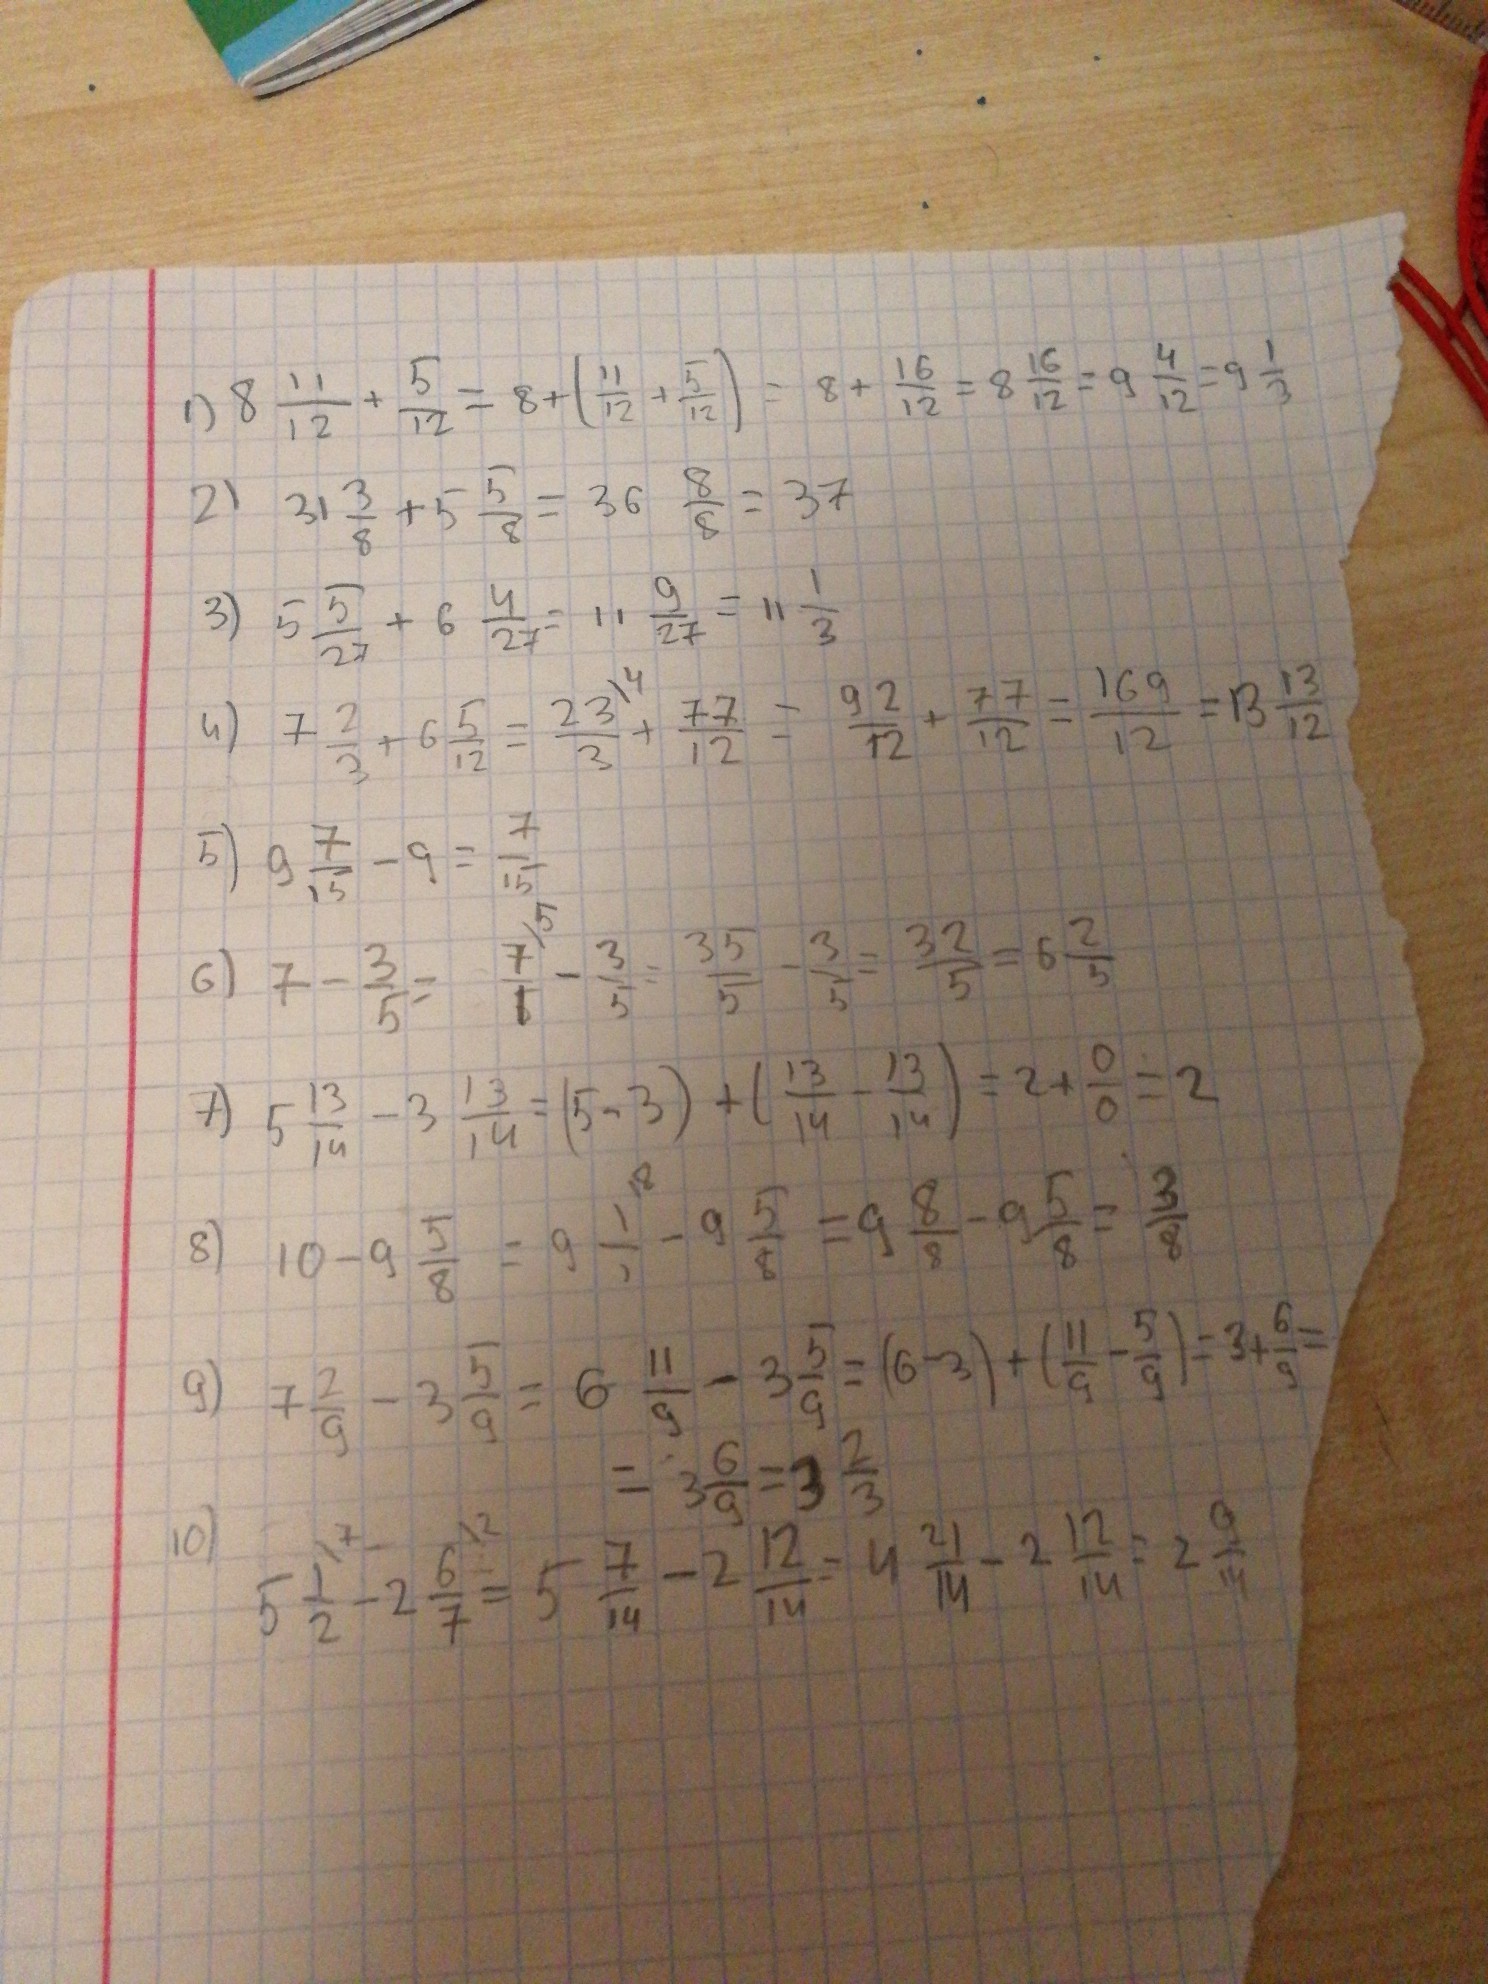 1) 8 11/12 + 5/12 = 8 + (11/12 + 5/12) = 8 + 16/12 = 8 16/12 = 9 4/12 = 9 1/3
2) 31 3/8 + 5 5/8 = 36 8/8 = 37
3) 5 5/27 + 6 4/27 = 11 9/27 = 11 1/3
4) 7 2/3 + 6 5/12 = 23/3 \4 + 77/12 = 92/12 + 77/12 = 169/12 = 13 13/12
5) 9 7/15 - 9 = 7/15
6) 7 - 3/5 = 7/1 \5 - 3/5 = 35/5 - 3/5 = 32/5 = 6 2/5
7) 5 13/14 - 3 13/14 = (5 - 3) + (13/14 - 13/14) = 2 + 0/0 = 2
8) 10 - 9 5/8 = 9 1/1 \8 - 9 5/8 = 9 8/8 - 9 5/8 = 3/8
9) 7 2/9 - 3 5/9 = 6 11/9 - 3 5/9 = (6 - 3) + (11/9 - 5/9) = 3 + 6/9 =
= 3 6/9 = 3 2/3
10) 5 1/2 \7 - 2 6/7 \2 = 5 7/14 - 2 12/14 = 4 21/14 - 2 12/14 = 2 9/14